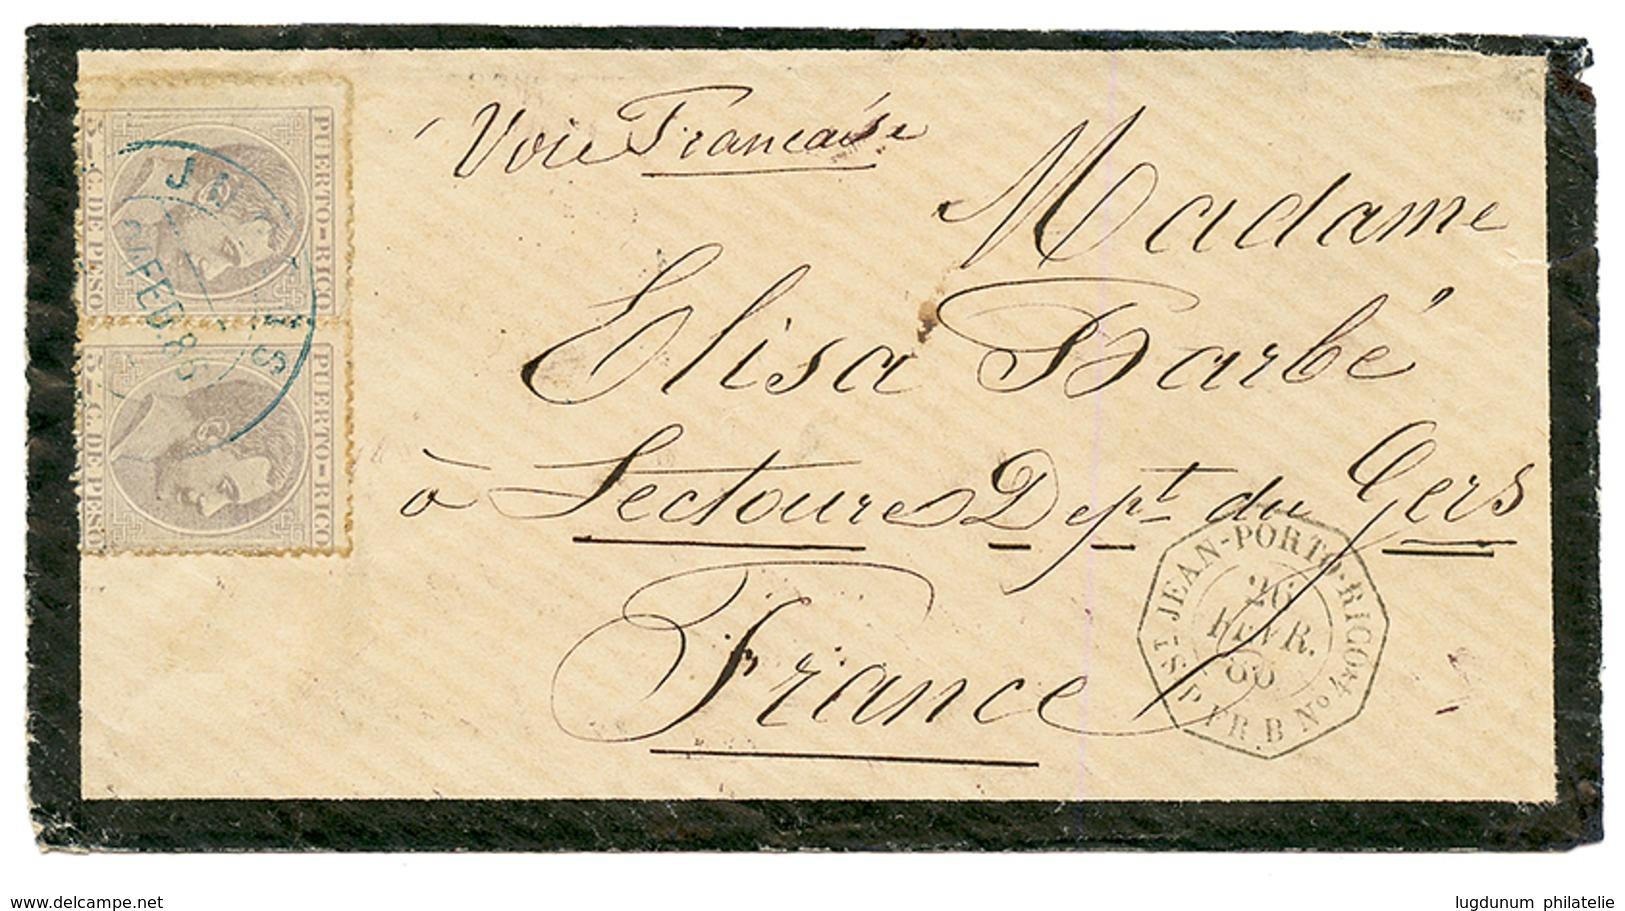 Voie Francaise
Madame
Elisa Barbé
à Lectoure Dept du Gers
France
PUERTO-RICO
5 C. DE PESO
PUERTO-RICO
5 C. DE PESO
FEB.86
ST JEAN-PORTO-RICO
26
FEVR.
86
P. FR. B No 4
www.delcampe.net
lugdunum philatelie